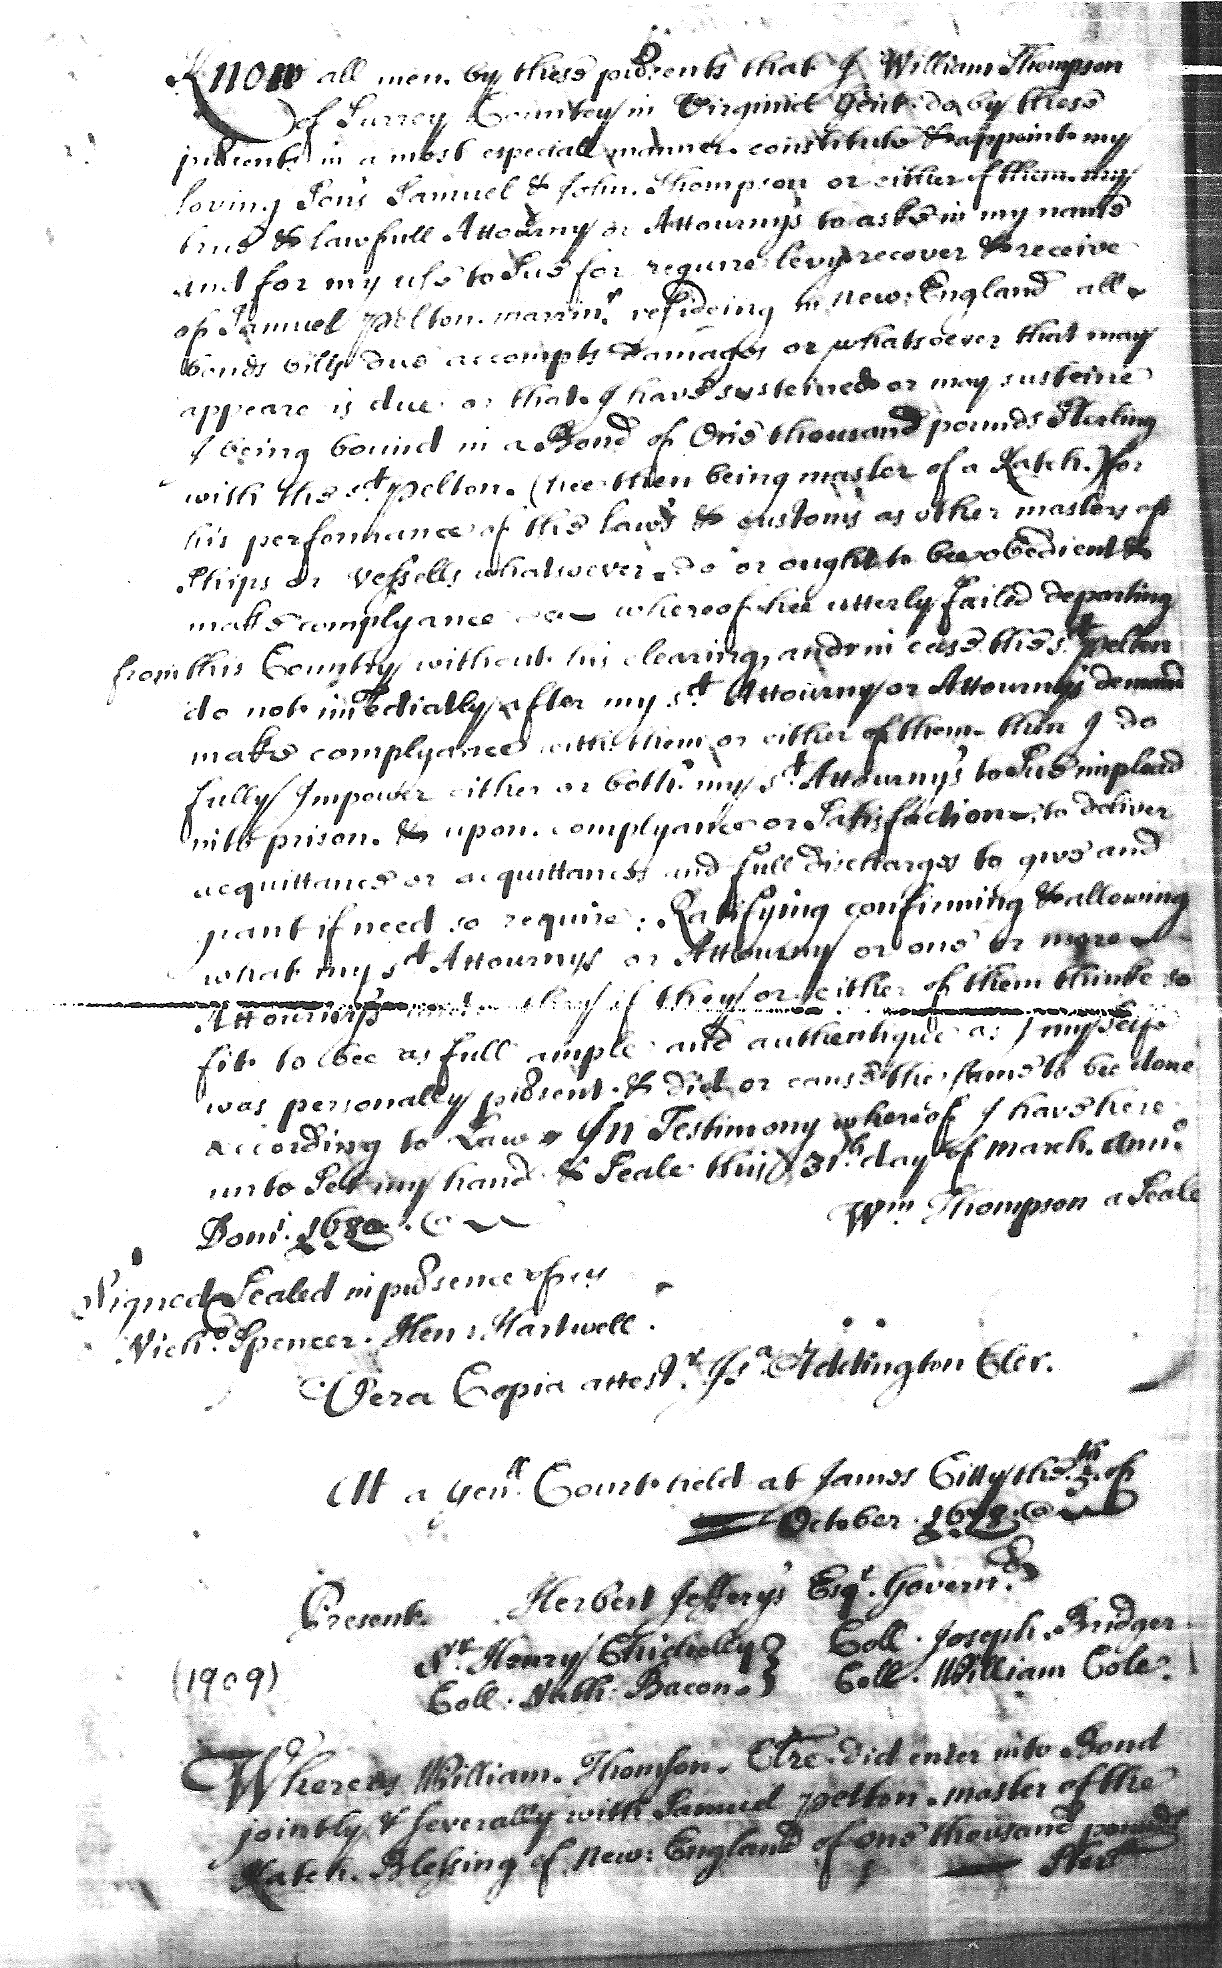 Know all men by these presents that I William Thompson
of Surrey Country in Virginia Gent: do by these
presents in a most especiall manner constitute & appoint my
loving Sons Samuel & John Thompson or either of them my
true & lawfull Attourny or Attournys to aske in my name
and for my use to Sue for require levy recover & receive
of Samuel Pelton marrinr. resideing in new: England all
bonds bills due accompts damages or whatsoever that may
appeare is due or that I have susteined or may susteine
I being bound in a Bond of One thousand pounds Sterling
with the sd. Pelton (hee then being master of a Katch) for
his performance of the laws & customs as other masters of
Ships or vessells whatsoever do or ought to bee obedient &
make complyance whereof hee utterly failed departing
from this Country without his clearing, and in case the sd. Pelton
do not imediatly after my sd. Attourny or Attournys demand
make complyance with them or either of them then I do
fully Impower either or both my sd. Attournys to Sue implead
prison & upon complyance or Satisfaction to deliver
acquittance or acquittances and full discharges to give and
grant if need so require: Ratifying confirming & allowing
what my sd Attournys or Attourny or one or more
Attournys they if they or either of them thinke so
fit to bee as full ample and authentique as I my self
was personally present & did or cause the same to bee done
according to Law In Testimony whereof I have here
unto Set my hand & Seale this 31th. day of March. Anno.
Domi. 1680
Wm Thompson a Seale
Signed Sealed in presence of us
Nicho. Spencer. Hen: Hartwell.
Vera Copia attestr. Isa. Addington Cler.
At a Genll. Court held at James Citty the th. of
October. 1678
Present
Herbert Jefferys Esqr. Governr.
Sr. Henry Chicheley } Coll. Joseph Bridger
(1909)
Coll. Nath: Bacon } Coll. William Cole
Whereas William Thomson. Clre. did enter into Bond
jointly & severally with Samuel Pelton master of the
Katch Blessing of New: England of one thousand pounds
Sterl